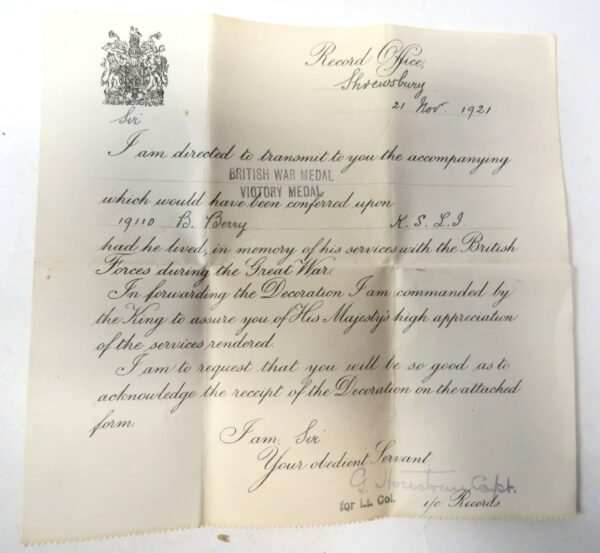 Record Office,
Shrewsbury
21 Nov. 1921
Sir
I am directed to transmit to you the accompanying
BRITISH WAR MEDAL
VICTORY MEDAL
which would have been conferred upon
19110 B. Berry K.S.L.I
had he lived, in memory of his services with the British
Forces during the Great War.
In forwarding the Decoration I am commanded by
the King to assure you of His Majesty's high appreciation
of the services rendered.
I am to request that you will be so good as to
acknowledge the receipt of the Decoration on the attached
form.
I am, Sir
Your obedient Servant,
G. Capt.
for Lt. Col. i/c Records